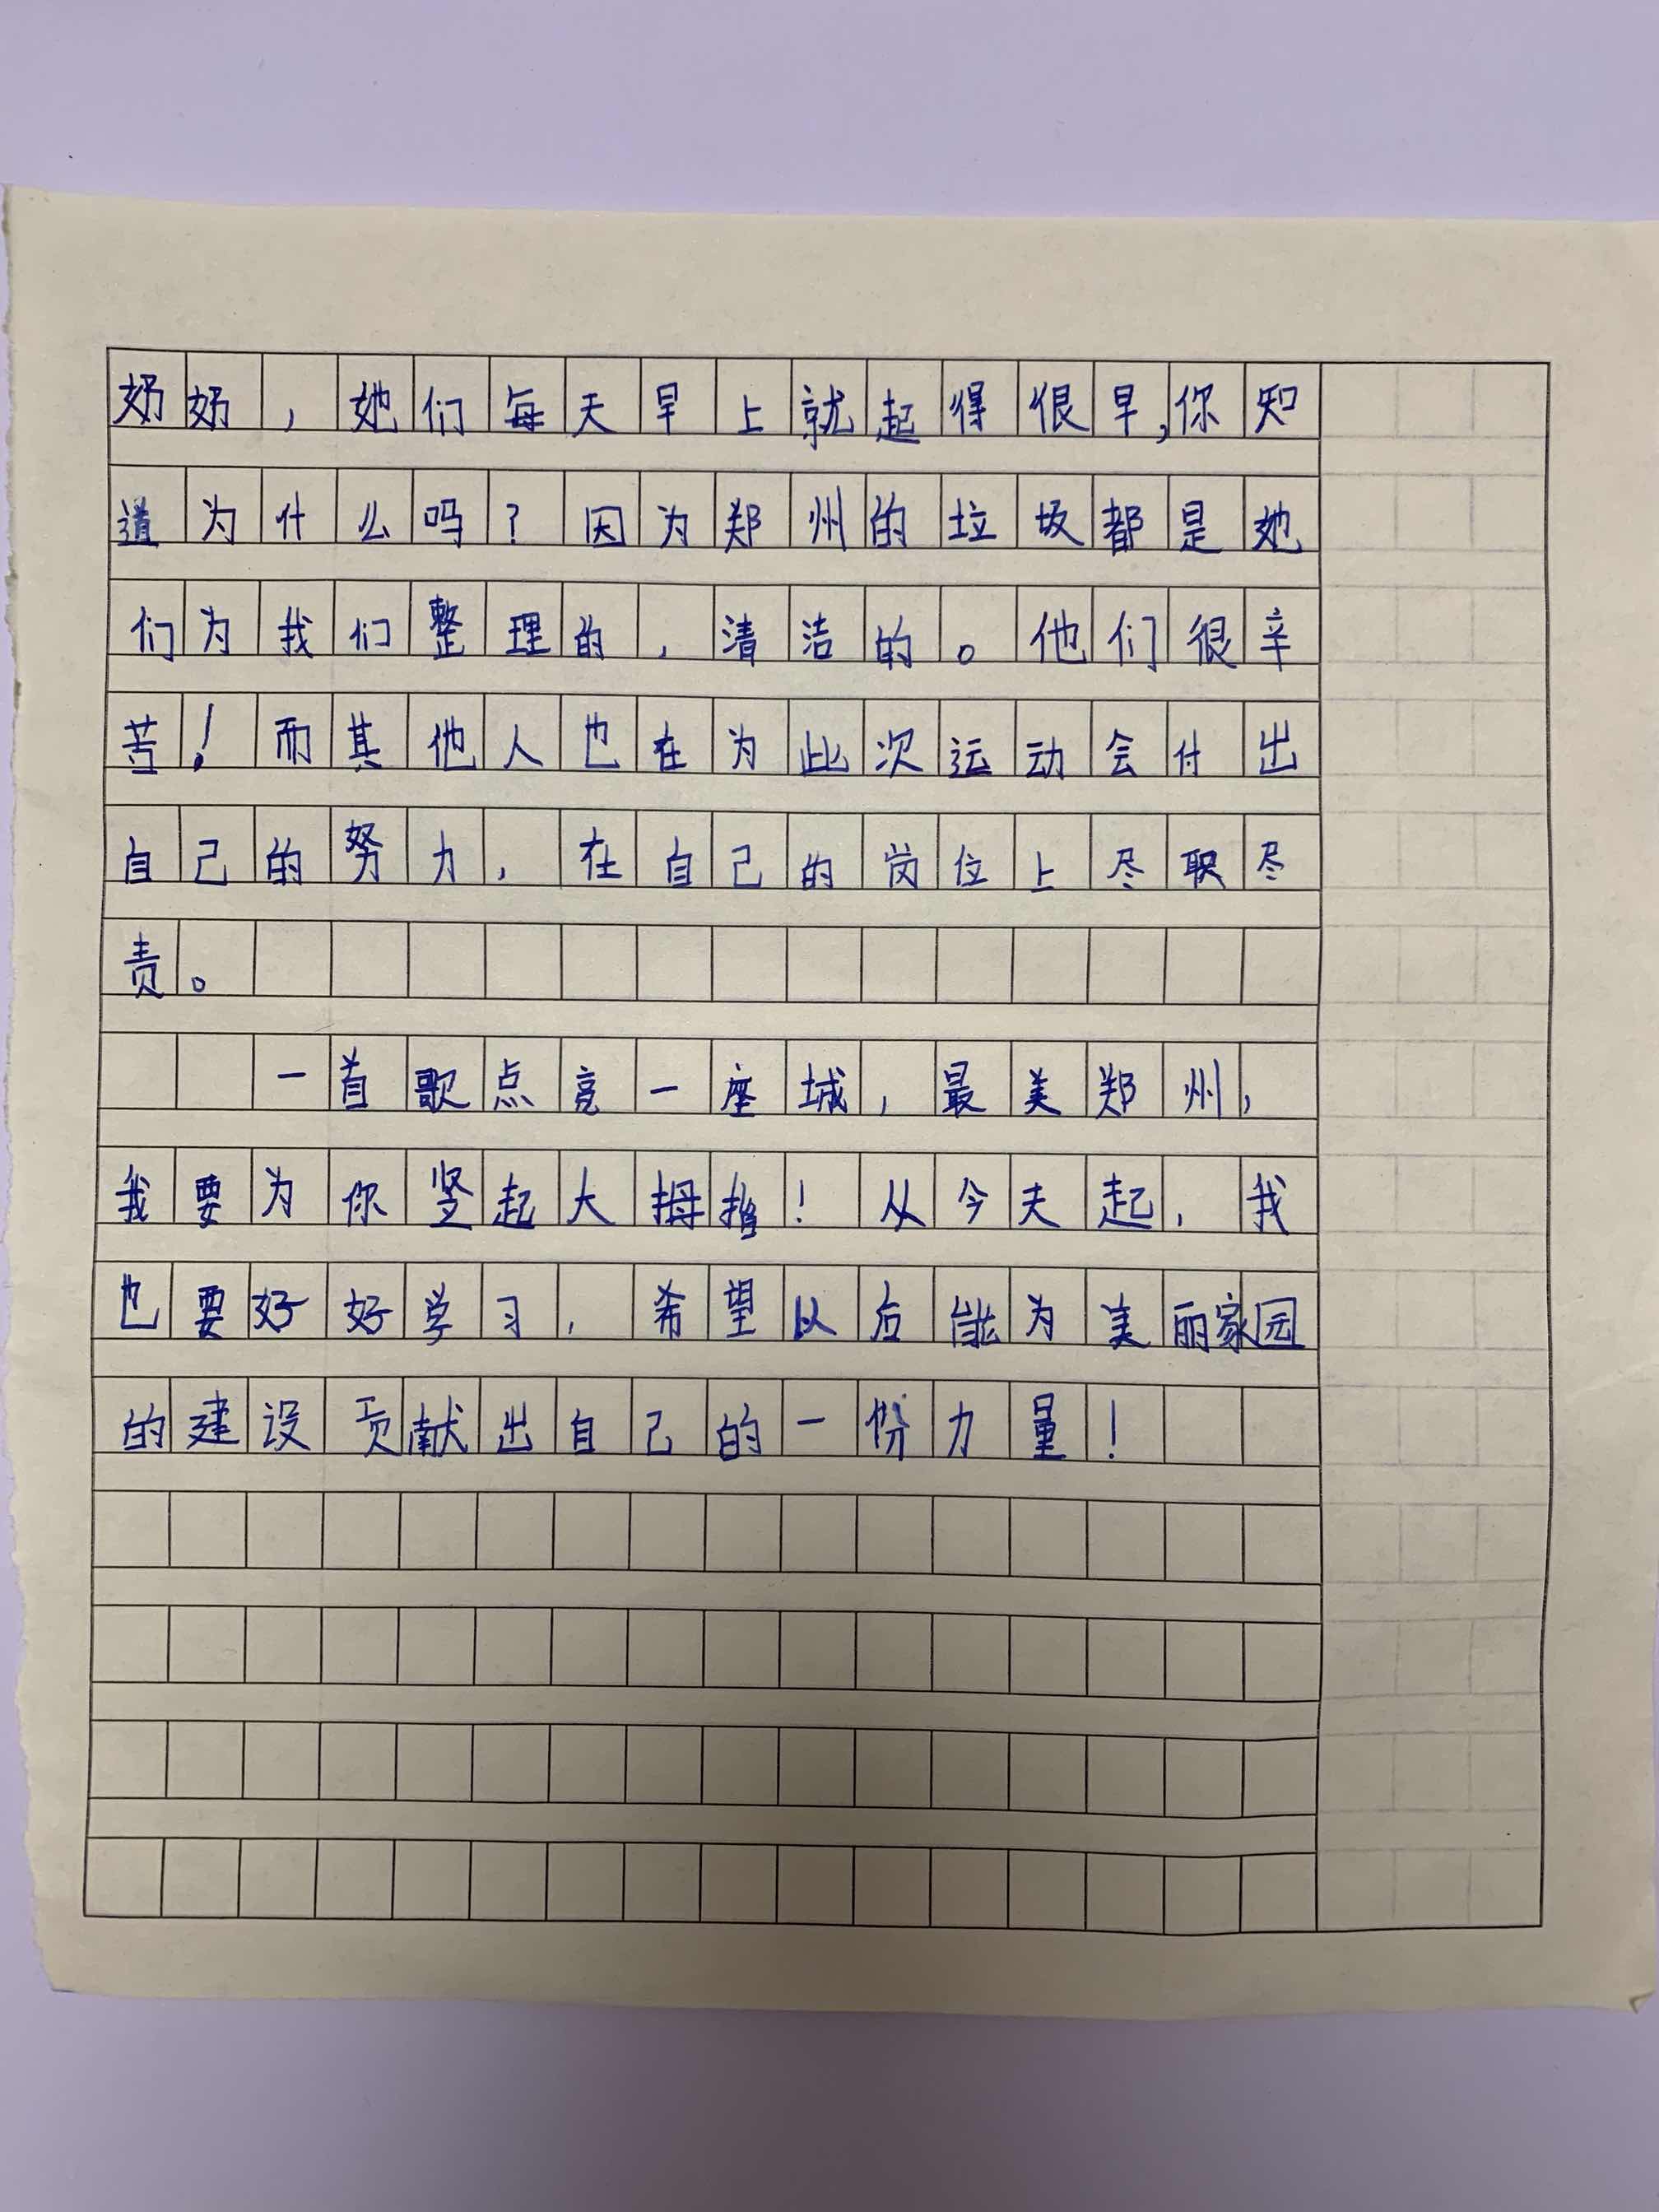 奶奶，她们每天早上就起得很早,你知
道为什么吗？因为郑州的垃圾都是她
们为我们整理的，清洁的。他们很辛
苦！而其他人也在为此次运动会付出
自己的努力，在自己的岗位上尽职尽
责。
一首歌点亮一座城，最美郑州，
我要为你竖起大拇指！从今天起，我
也要好好学习，希望以后能为美丽家园
的建设贡献出自己的一份力量！